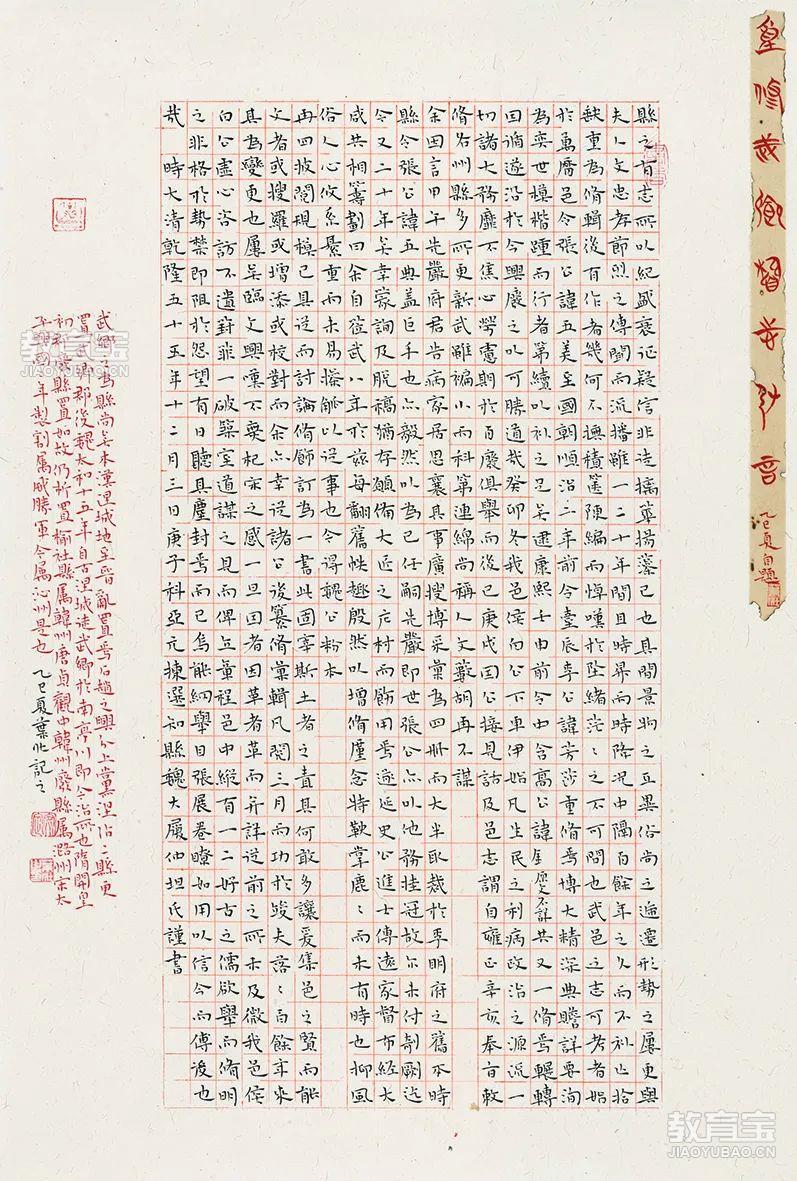 皇修武鄉縣志後言
乙巳夏自題
縣之有志所以紀盛衰證疑信非徒摛華掞藻已也其間景物之立異俗尚之遞遷形勢之屢更與
夫人文忠孝節烈之傳聞而流播雖一二十年間且時昇而時降況中隔百餘年之久而不補亡拾
缺重為脩輯後有作者幾何不撫積篋陳編而悼嘆於墜緒茫々之不可問也武邑之志可考者始
於萬曆邑令張公諱五美至國朝順治二年前令臺辰李公諱芳莎重脩焉博大精深典贍詳要洵
為奕世模楷踵而行者第續以補之足矣逮康熙壬申前令中含高公諱 歷久不詳 共又一脩焉輾轉
因循遂沿於今興廢之以可勝道哉癸卯冬我邑侯白公下車伊始凡生民之利病政治之源流一
切諸大務靡不焦心勞慮期於百廢俱舉而後已庚戌因公接見詁及邑志謂自雍正辛亥奉旨敕
脩各州縣多所更新武雖褊小而科第連綿尚稱人文藪胡再不謀
余因言甲午先嚴府君告病家居思襄其事廣搜博采彙為四冊而大半取裁於李明府之舊本時
縣令張公諱五典蓋巨手也亦毅然以為己任嗣先嚴即世張公亦以他務挂冠故尔未付剞劂迄
令又二十年矣幸蒙詢及脫稿猶存願備大匠之庀材而飭用焉遞延史公進士傳遠家督布經大
咸共相籌劃曰余自蒞武八年於茲每翻舊帙趣殷然以增脩廑念特鞅掌鹿々而未有時也抑風
俗人心攸系綦重而未易操觚以從事也今得魏公粉本
再四披閱規模已具從而討論脩飾訂為一書此固宰斯土者之責具何敢多讓爰集邑之賢而能
文者或搜羅或增添或校對而余亦幸從諸公後纂脩彙輯凡閱三月而功於竣夫落々百餘年來
其為變更也屢矣臨文興嘆不棄杞宋之感一旦因者因革者革而并詳從前之所未及微我邑侯
白公虛心咨訪不遺葑菲一破築室道謀之見而俾立彙程邑中縱有一二好古之儒欲舉而脩明
之非格於勢禁即阻於怨望有日聽其塵封焉而已烏能綱舉目張展卷瞭如用以信今而傳後也
哉 時大清乾隆五十五年十二月三日庚子科亞元揀選知縣魏大屨仲坦氏謹書
武鄉之為縣尚矣本漢涅城地至晉亂置焉後趙之興分上黨涅沾二縣更
置武鄉郡後魏太和十五年自古涅城徙武鄉於南亭川即今治所也隋開皇
初郡廢縣置如故仍析置榆社縣屬韓州唐貞觀中韓州廢縣屬潞州宋太
平興國二年製割屬威勝軍今屬沁州是也 乙巳夏葉兆記之
教育宝
JIAOYUBAO.CN
教育宝
JIAOYUBAO.CN